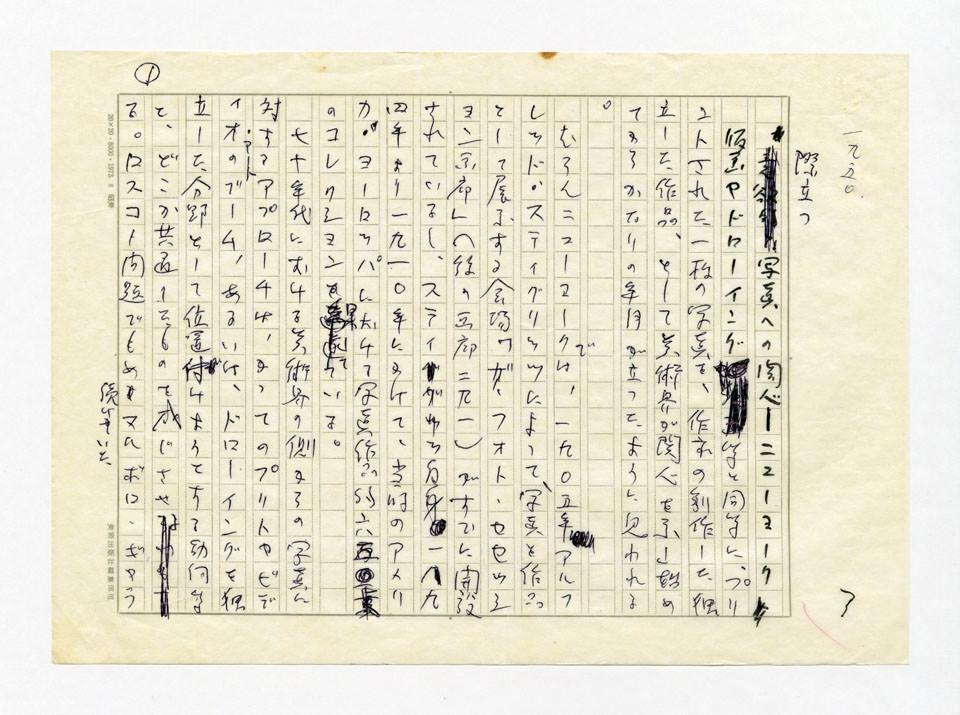 一九五〇.
際立つ
写真への関心ーニューヨーク
版画やドローイング 同等に、プリ
ントされた一枚の写真を、作家の創作した独
立した作品、として美術界が関心を示し始め
てからかなりの年月が立ったように思われる
。
むろんニューヨークでは、一九〇五年アルフ
レッド・スティグリッツによって、写真を作品
として展示する会場、フォト・セセッシ
ョン画廊(後の画廊二九一)がすでに開設
されているし、スティ 自身 一八九
四年より一九一〇年にかけて、当時のアメリ
カ・ヨーロッパにおける写真作品 六
のコレクションを 果している。
七十年代における美術界の側からの写真に
対するアプローチは、かつてのプリントやビデ
ィオ・アートのブーム、あるいは、ドローイングを独
立した分野として位置付けようとする動向等
と、どこか共通したものを感じさせ
る。ロスコー問題でもめたマルボロ・ギャラ
①
20×20・8000・1973
東京出版